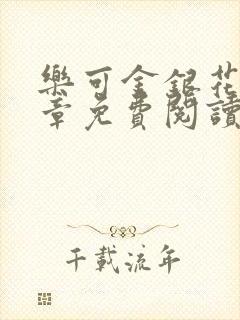 樂可金銀花
章免費閱讀
千載流年